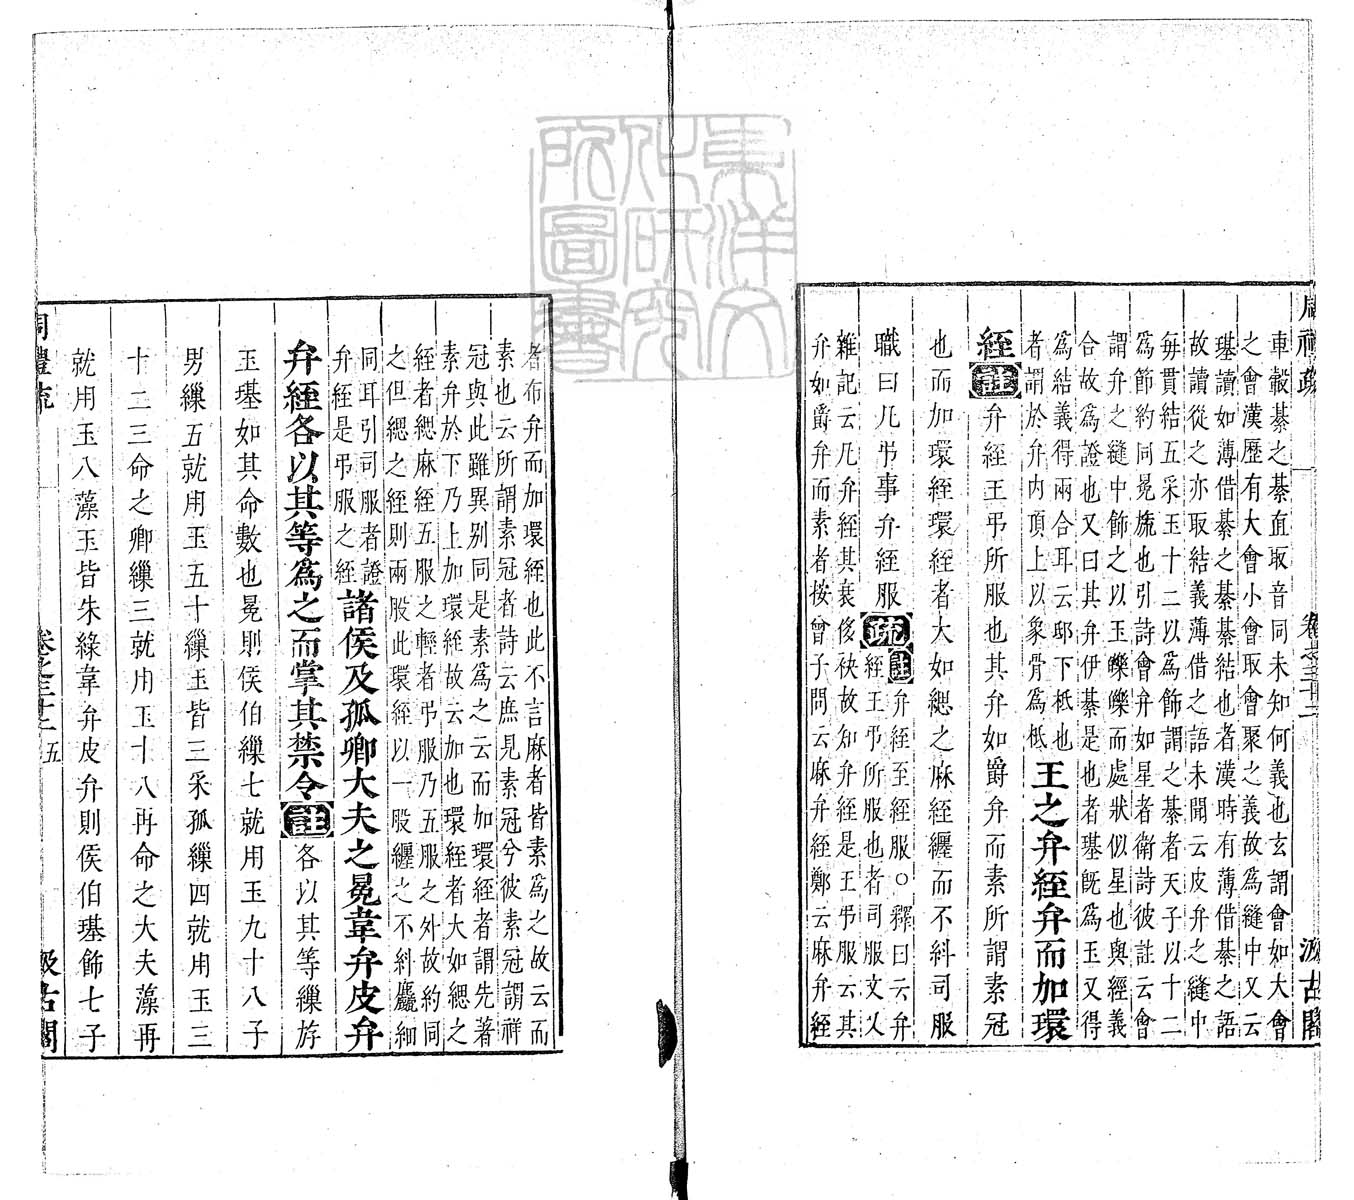 周禮疏
卷之三十二
汲古閣
車轂綦之綦直取音同未知何義也玄謂會如大會
之會漢歷有大會小會取會聚之義故為縫中又云
璂讀如薄借綦之綦綦結也者漢時有薄借綦之語
故讀從之亦取結義薄借之語未聞云皮弁之縫中
每貫結五采玉十二以為飾謂之綦者天子以十二
為節約同冕旒也引詩會弁如星者衛詩彼註云會
謂弁之縫中飾之以玉皪皪而處狀似星也與經義
合故為證也又曰其弁伊綦是也者璂旣為玉又得
為結義得兩合耳云邸下柢也
者謂於弁內頂上以象骨為柢
王之弁絰弁而加環
絰註弁絰王弔所服也其弁如爵弁而素所謂素冠
也而加環絰環絰者大如緦之麻絰纒而不糾司服
職曰凡弔事弁絰服疏註弁絰至絰服○釋曰云弁
絰王弔所服也者司服文乂
雜記云凡弁絰其衰侈袂故知弁絰是王弔服云其
弁如爵弁而素者按曾子問云麻弁絰鄭云麻弁絰
者布弁而加環絰也此不言麻者皆素為之故云而
素也云所謂素冠者詩云庶見素冠兮彼素冠謂祥
冠與此雖異別同是素為之云而加環絰者謂先著
素弁於下乃上加環絰故云加也環絰者大如緦之
絰者緦麻絰五服之輕者弔服乃五服之外故約同
之但緦之絰則兩股此環絰以一股纒之不糾麤細
同耳引司服者證
弁絰是弔服之絰
諸侯及孤卿大夫之冕韋弁皮弁
弁絰各以其等為之而掌其禁令註各以其等繅斿
玉璂如其命數也冕則侯伯繅七就用玉九十八子
男繅五就用玉五十繅玉皆三采孤繅四就用玉三
十二三命之卿繅三就用玉十八再命之大夫藻再
就用玉八藻玉皆朱綠韋弁皮弁則侯伯璂飾七子
周禮疏
卷之三十二
五
汲古閣
東洋文化研究所圖書